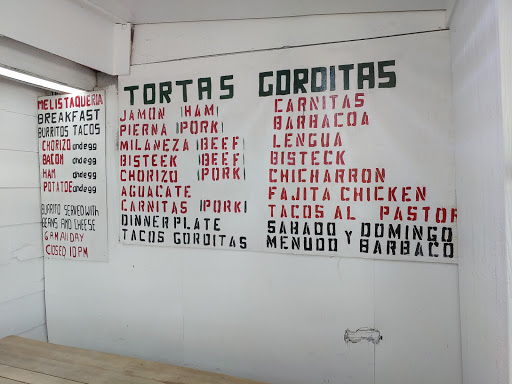 MELISTAQUERIA
BREAKFAST
BURRITOS TACOS
CHORIZO and egg
BACON and egg
HAM and egg
POTATOE and egg
BURRITO SERVED WITH
BEANS AND CHEESE
6 AM All DAY
CLOSED 10 PM
TORTAS GORDITAS
JAMON (HAM)
PIERNA (PORK)
MILANEZA (BEEF
BISTEEK (BEEF
CHORIZO (PORK)
AGUACATE
CARNITAS (PORK)
DINNER PLATE
TACOS GORDITAS
CARNITAS
BARBACOA
LENGUA
BISTECK
CHICHARRON
FAJITA CHICKEN
TACOS AL PASTOR
SABADO Y DOMINGO
MENUDO BARBACO